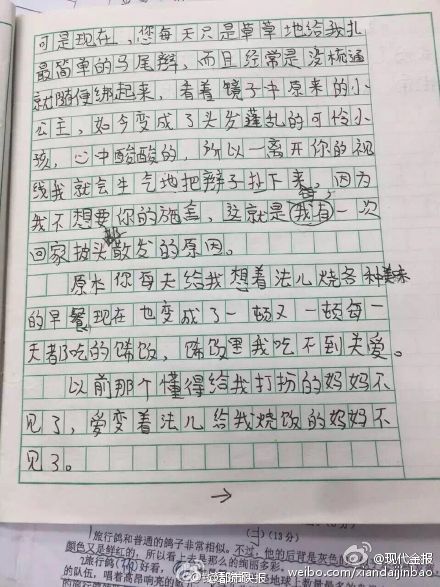 可是现在，您每天只是草草地给我扎
最简单的马尾辫，而且经常是没梳通
就随便绑起来，看着镜子中原来的小
公主，如今变成了头发蓬乱的可怜小
孩，心中酸酸的，所以一离开你的视
线我就会生气地把辫子扯下来，因为
我不想要你的施舍，这就是我有一次
回家披头散发的原因。
原本你每天给我想着法儿烧各种美味
的早餐现在也变成了一顿又一顿每一
天都吃的稀饭，稀饭里我吃不到关爱。
以前那个懂得给我打扮的妈妈不
见了，爱变着法儿给我烧饭的妈妈不
见了。
→
(13分)
旅行鸽和普通的鸽子非常相似。不过，他的后背是灰色
颜色又是鲜红的，所以看上去是那么的绚丽多彩。
旅行鸽
好看，
的队伍，唱着高昂响亮的
地球上数量最多的鸟
@现代金报
weibo.com/xiandaijinbao